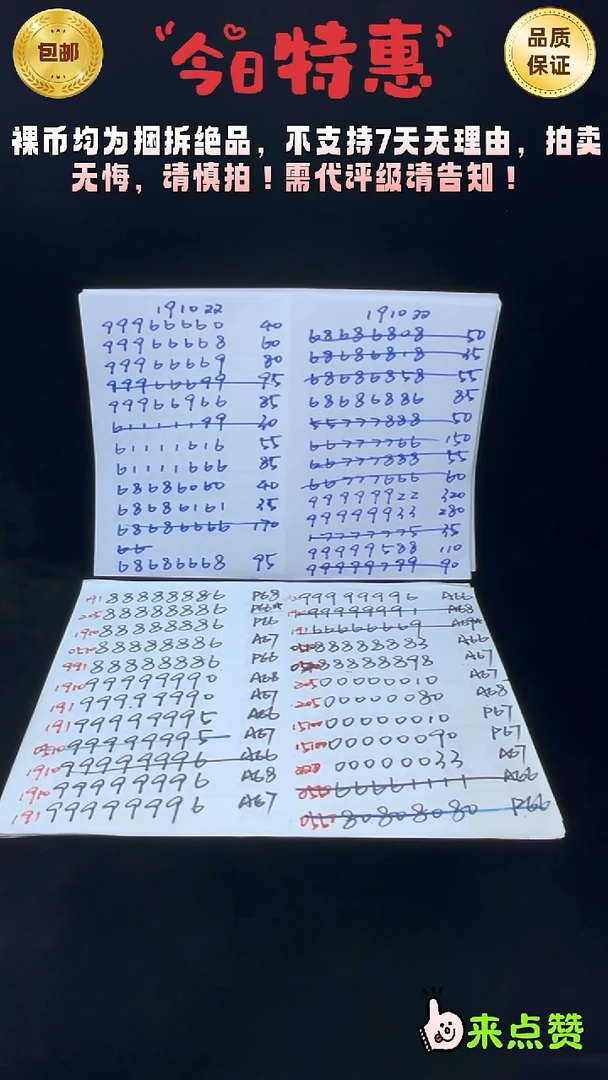 包邮
今日特惠
品质
保证
裸币均为捆拆绝品，不支持7天无理由，拍卖
无悔，请慎拍！需代评级请告知！
191022
99966660 40
99966668 60
99966669 80
99966699 95
99966966 85
61111199 30
61111616 55
61111666 85
68686060 40
68686161 35
68686666 170
66
68686668 95
191022
68686808 50
68686818 35
68686858 55
68686886 85
55777888 50
66777766 150
66777888 55
66777666 60
99999922 320
99999933 280
17777775 35
99999588 110
99999799 90
191 88888886 P68
205 88888886 P66★
1910 88888886 P66
0510 88888886 A67
991 88888886 P66
1910 99999990 A68
191 99999990 A67
191 99999995 A66
0510 99999995 A67
1910 99999996 A66
1910 99999996 A68
191 99999996 A67
99999996 A66
99999991 A68
191 66666669
88888883 A66
88888898 A67
205 00000010 A67
205 00000080 A68
1510 00000010 P67
1510 00000090 P67
00000033 A67
66661111 A66
80808080 P66
来点赞